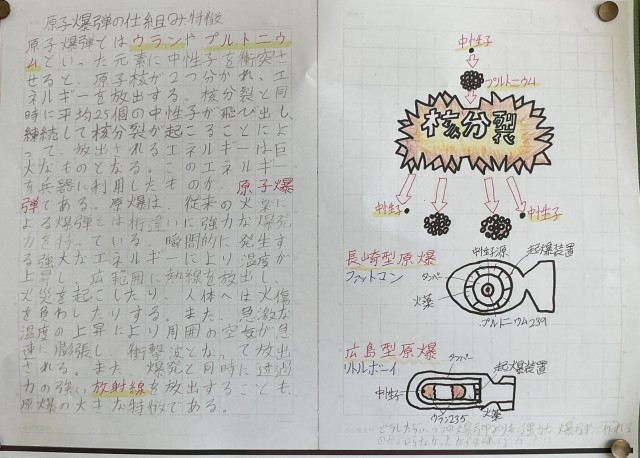 原子爆弾の仕組み特徴
原子爆弾とはウランやプルトニウ
ムといった元素に中性子を衝突さ
せると、原子核が2つ分かれ、エ
ネルギーを放出する。核分裂と同
時に平均2.5個の中性子が飛び出し、
練結して核分裂が起こることによ
って、放出されるエネルギーは巨
大なものとなる。このエネルギー
を兵器に利用したものが、原子爆
弾である。原爆は、従来の火薬に
よる爆弾とは桁違いに強力な爆発
力を持っている。瞬間的に発生す
る強大なエネルギーにより温度が
上昇し、広範囲に熱線を放出し、
火災を起こしたり、人体へは火傷
を負わしたりする。また、急激な
温度の上昇により周囲の空気が急
速に膨張し、衝撃波となって放出
される。また、爆発と同時に透過
力の強い放射線を放出することも、
原爆の大きな特徴である。
中性子
プルトニウム
核分裂
中性子
中性子
長崎型原爆
ファットマン
中性子源
起爆装置
タンパー
火薬
プルトニウム239
広島型原爆
リトルボーイ
タンパー
起爆装置
中性子
ウラン235
火薬